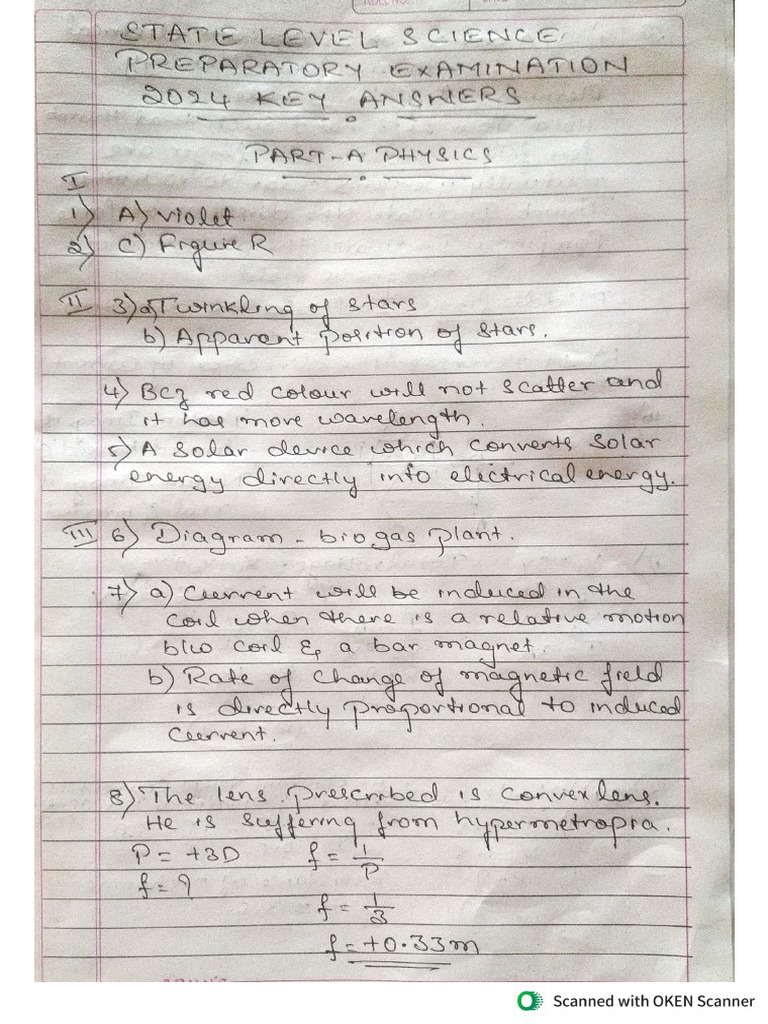 STATE LEVEL SCIENCE
PREPARATORY EXAMINATION
2024 KEY ANSWERS
PART-A PHYSICS
I
1) A) Violet
2) C) Figure R
II 3) a) Twinkling of stars
b) Apparent position of stars.
4) Bcz red colour will not scatter and
it has more wavelength.
5) A Solar device which converts Solar
energy directly into electrical energy.
III 6) Diagram - bio gas plant.
7) a) Current will be induced in the
coil when there is a relative motion
b/w coil & a bar magnet.
b) Rate of change of magnetic field
is directly proportional to induced
current.
8) The lens prescribed is convex lens.
He is suffering from hypermetropia.
P = +3D f = 1/P
f = ?
f = 1/3
f = +0.33m
Scanned with OKEN Scanner